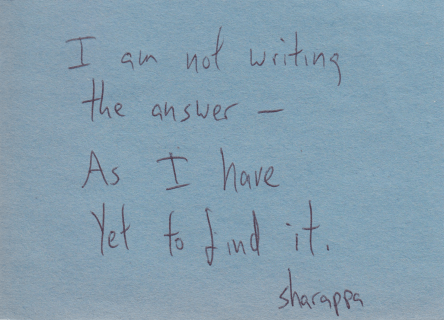 I am not writing
the answer —
As I have
Yet to find it.
sharappa